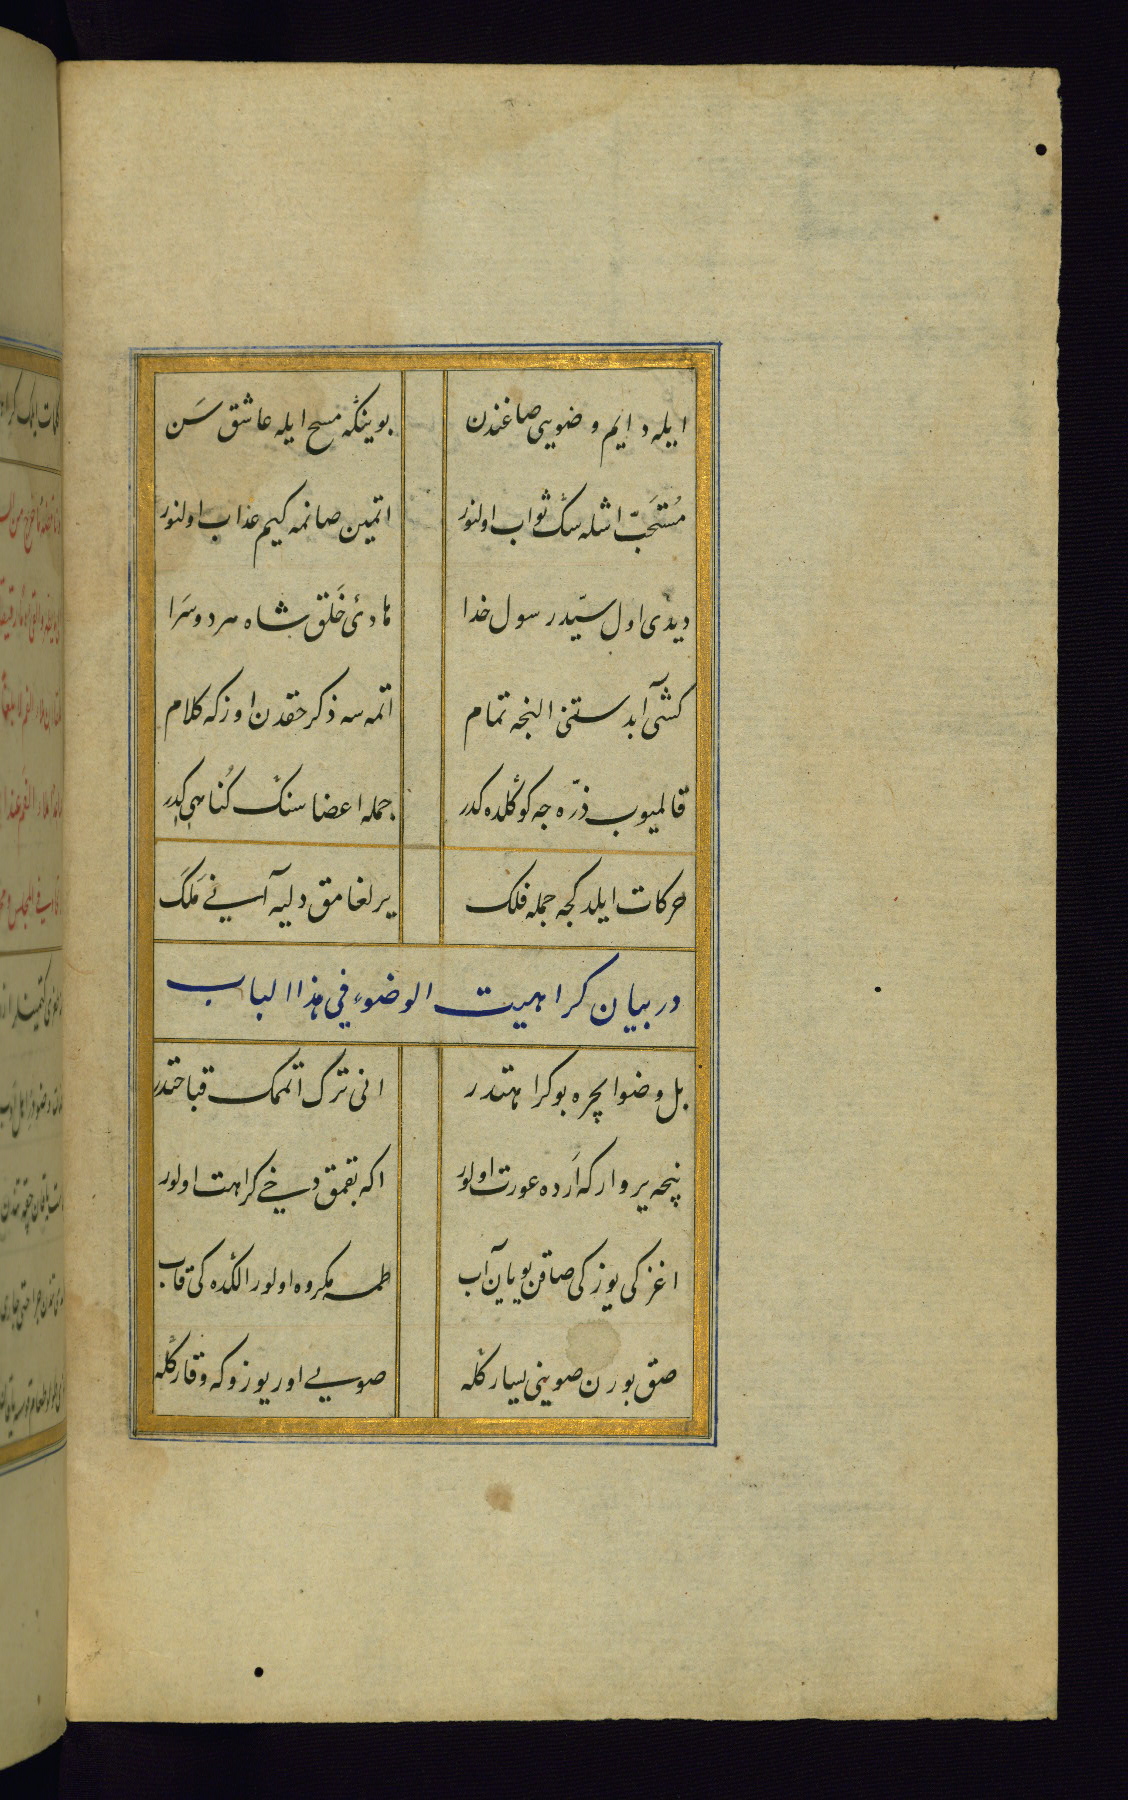 ایله دایم وضویی صاغندن بوینکه مسح ایله عاشق سَن
مُستَحَبّ اشله سک ثواب اولنور اتمین صانمه کیم عذاب اولنور
دیدی اول سیّد رسول خدا هادئ خَلق شاه هر دو سَرا
کشی آبدستنی النجه تمام اتمه سه ذکر حقدن اوزکه کلام
قالمیوب ذرّه جه کوڭلده کدر جمله اعضا سنڭ کُناهی کیدر
حرکات ایلدکجه جمله فلک یرلغامق دلیه آنی مَلَک
در بیان کراهیت الوضوء فی هذا الباب
بل وضو ایچره بو کراهتدر انی ترک اتمک قباحتدر
نیجه یر وارکه اَرده عورت اولور اکه بقمق دخی کراهت اولور
اغزکی یوزکی صاقن یویان آب طمسه مکروه اولور الڭده کی قاب
صق بورن صوینی یسار کله صویی اور یوزوکه وقار کله